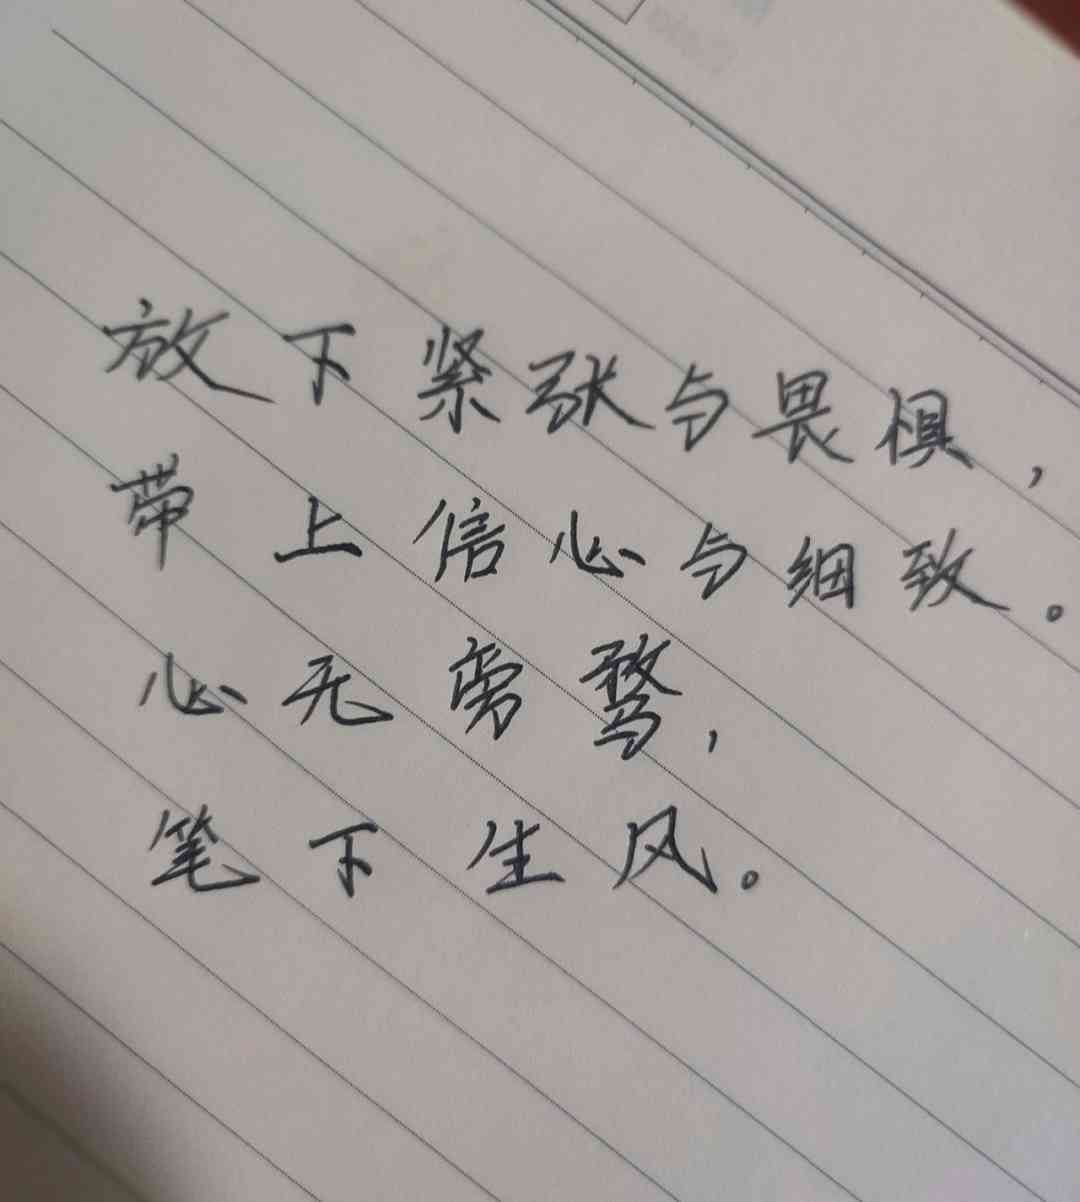 放下紧张与畏惧，
带上信心与细致。
心无旁骛，
笔下生风。